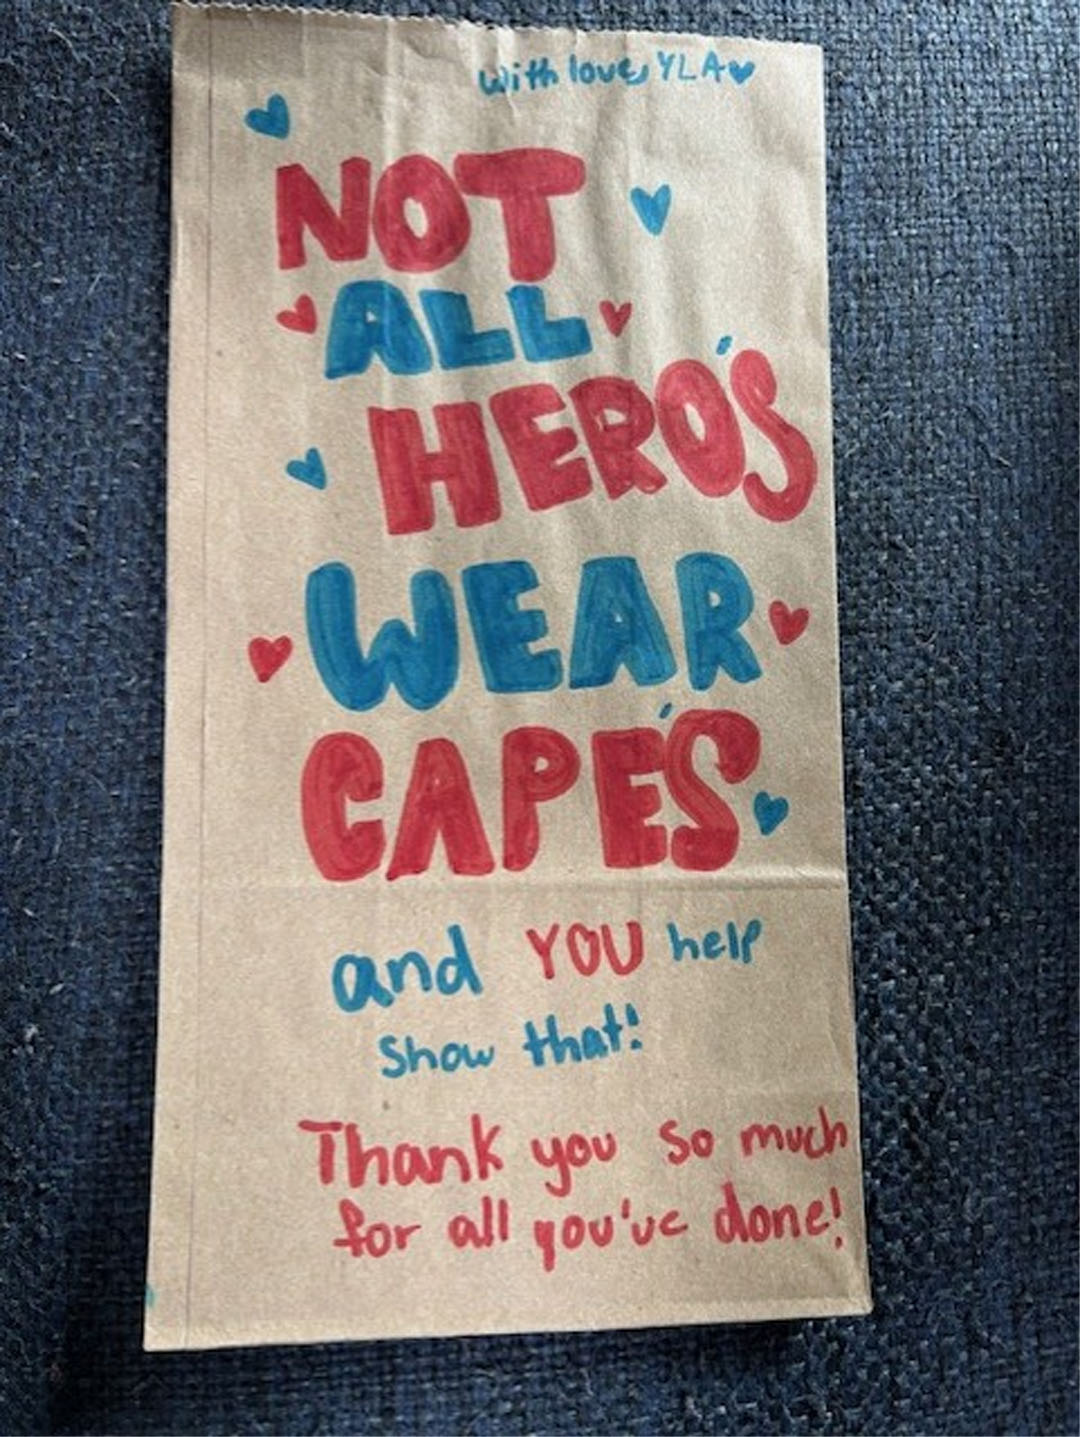 With love, YLA
NOT
ALL
HERO'S
WEAR
CAPE'S
and YOU help
show that!
Thank you so much
for all you've done!